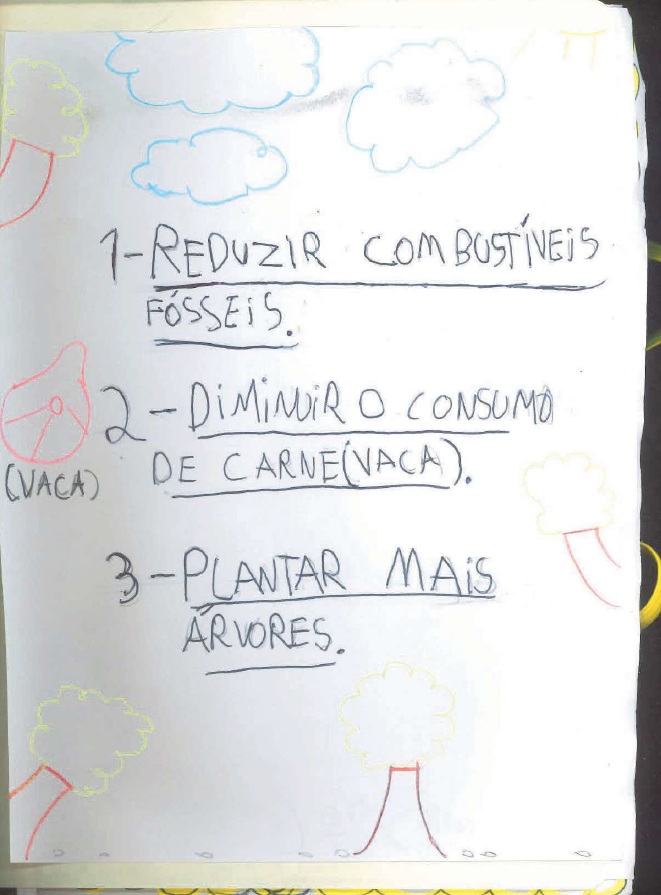 1-REDUZIR COMBUSTÍVEIS
FÓSSEIS.
2-DIMINUIR O CONSUMO
DE CARNE(VACA).
(VACA)
3-PLANTAR MAIS
ÁRVORES.